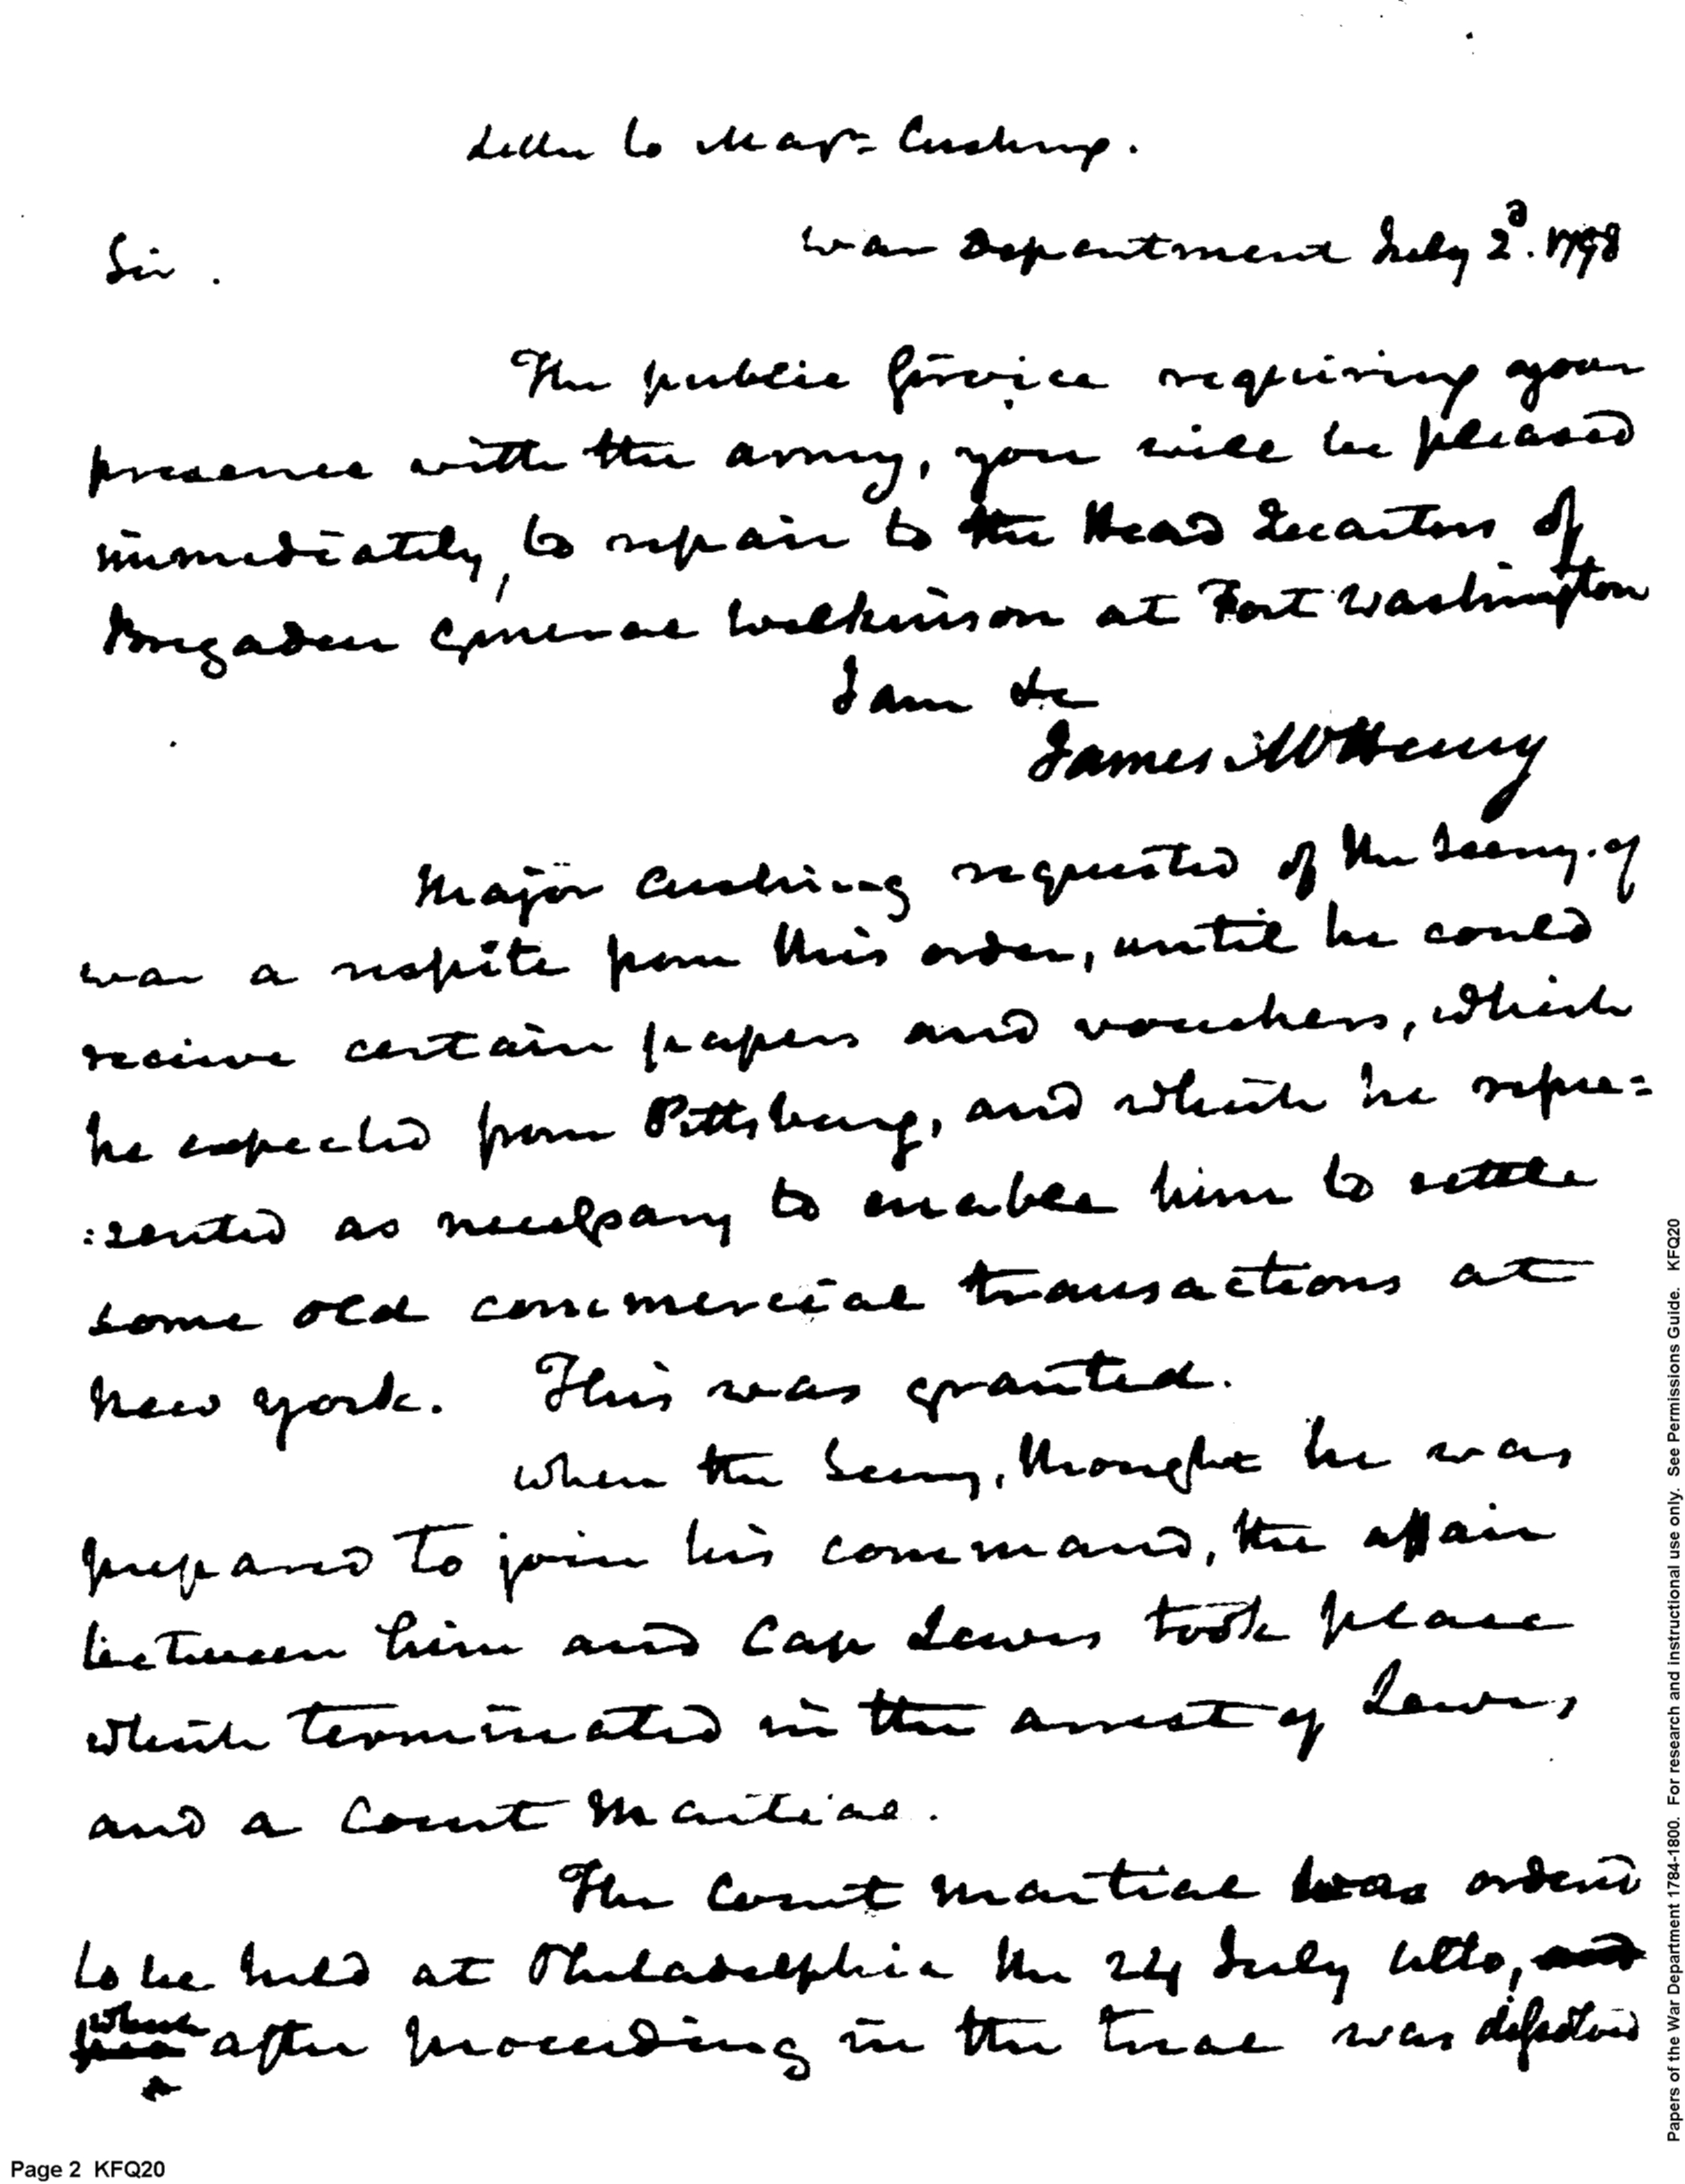 Letter to Majr. Cushing.
War Department July 2d. 1798
Sir.
The public Service requiring your
presence with the army, you will be pleased
immediately, to repair to the Head Quarters of
Brigadier General Wilkinson at Fort Washington
I am &c
James McHenry
Major Cushing requested of the Secry. of
war a respite from this order, until he could
recieve certain papers and vouchers, which
he expected from Pittsburg, and which he repre=
:sented as necessary to enable him to settle
some old commercial transactions at
New York. This was granted.
When the Secry, thought he was
prepared to join his command, the affair
between him and Cap Lewis took place
which terminated in the arrest of Lewis,
and a Court Martial.
The Court Martial was ordered
to be held at Philadelphia the 24 July ulto, and
where after proceeding in the trial was dissolved
Page 2 KFQ20
Papers of the War Department 1784-1800. For research and instructional use only. See Permissions Guide. KFQ20